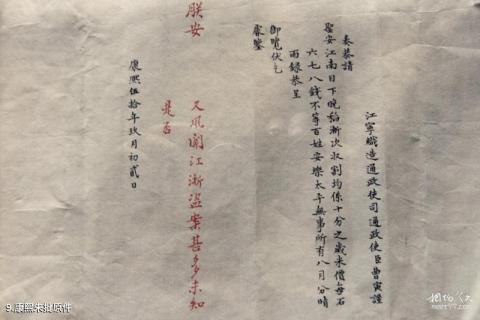 江寧織造通政使司通政使臣曹寅謹
奏恭請
聖安江南目下晚稻漸次收割均係十分之歲米價每石
六七八錢不等百姓安樂太平無事所有八月分晴
雨錄恭呈
御覽伏乞
睿鑒
又風聞江浙盜案甚多未知
是否
康熙伍拾年玖月初貳日
朕安
9.康熙朱批原件